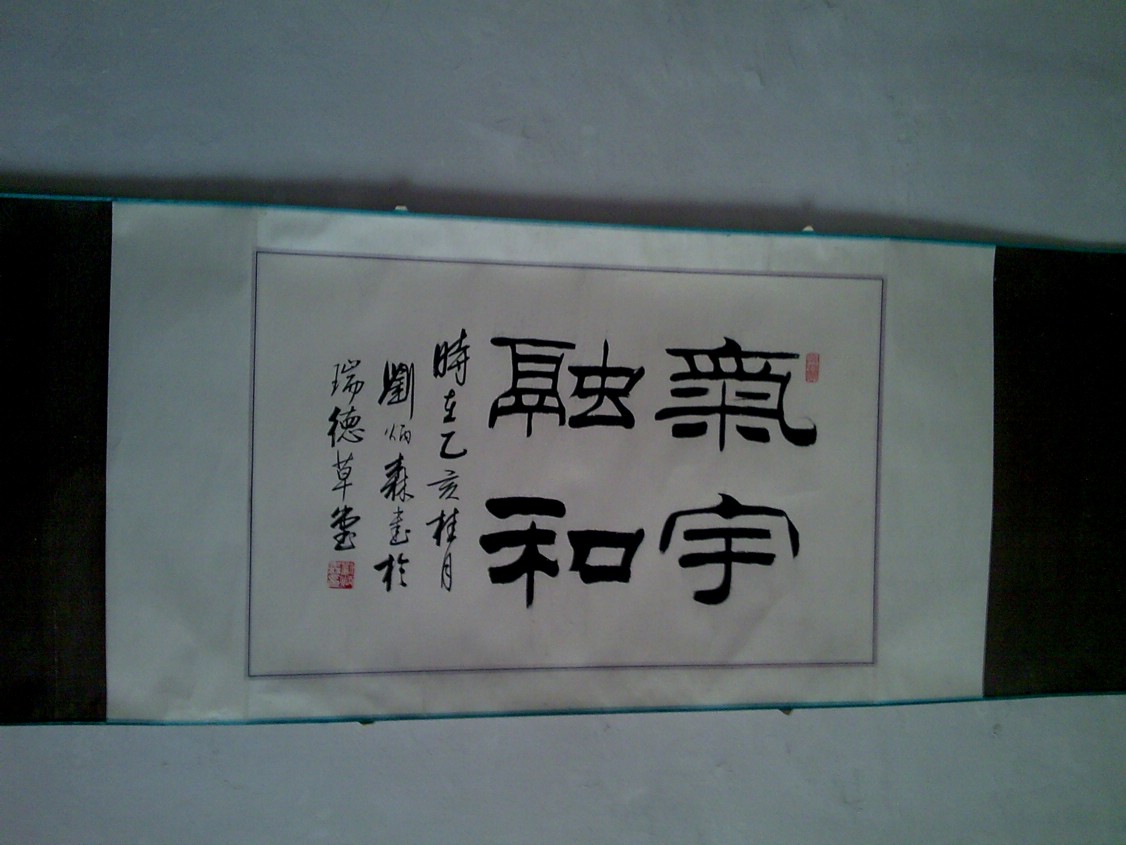 氣宇
融和
時在乙亥桂月
劉炳森書於
瑞德草堂